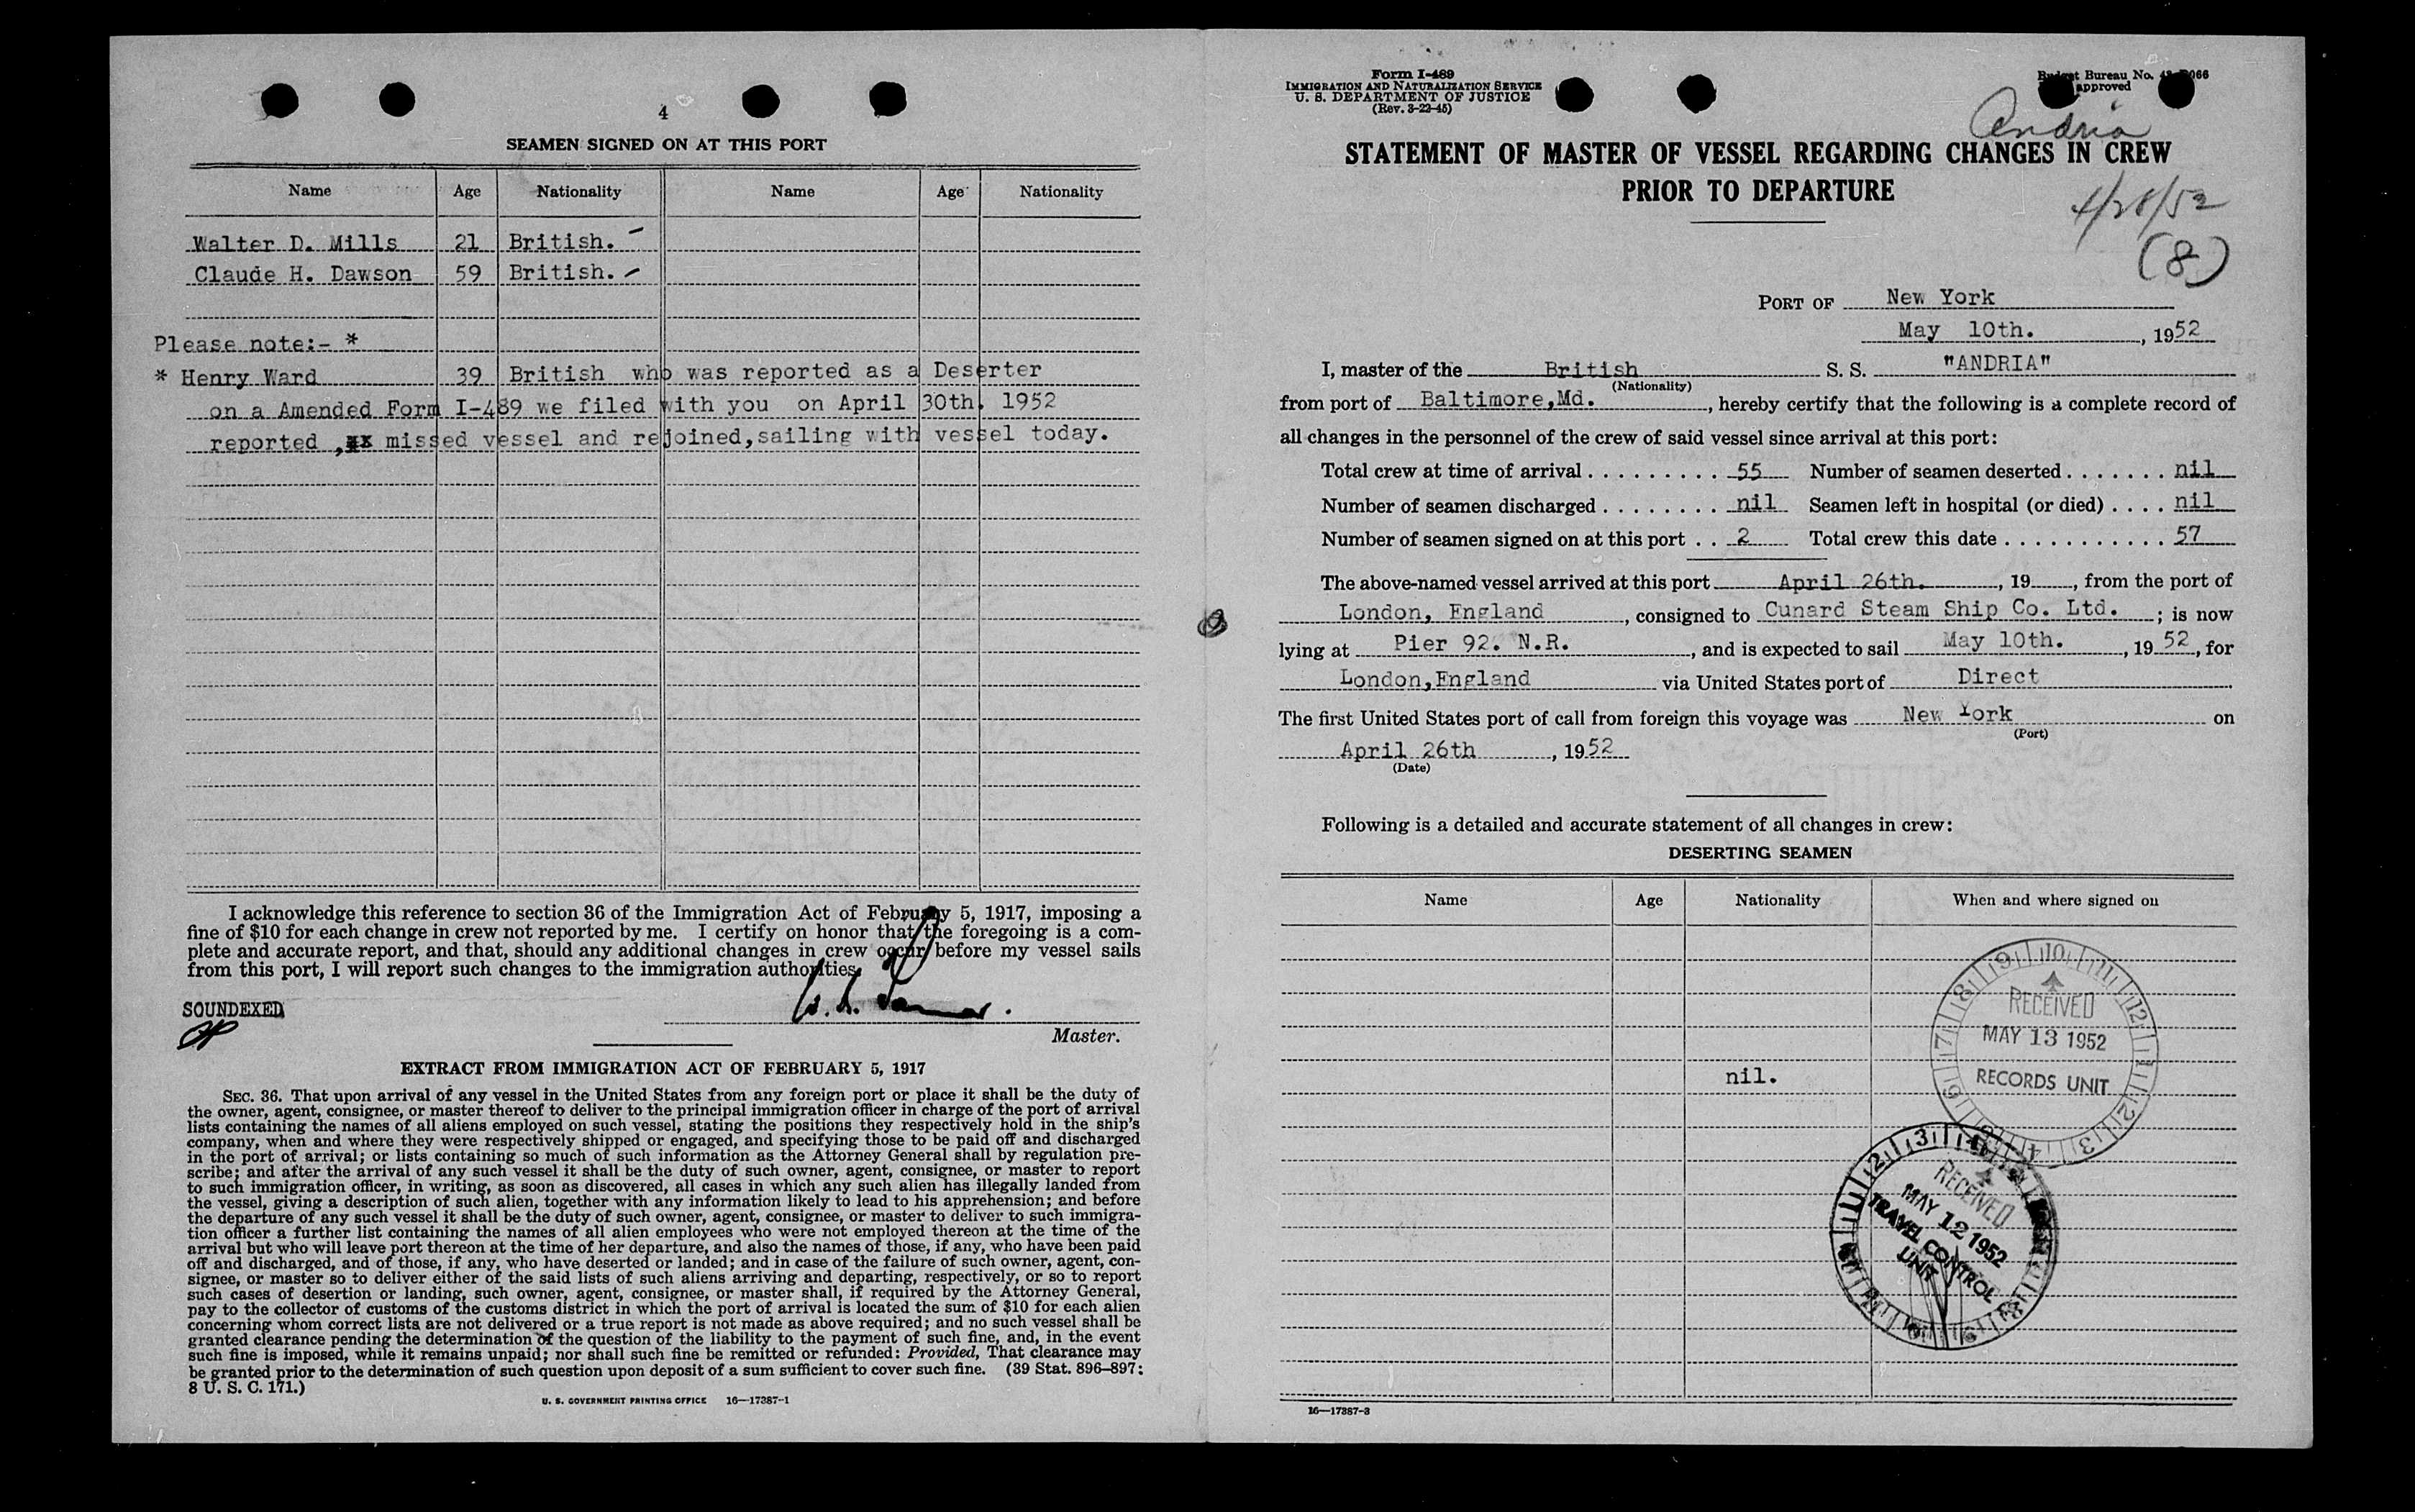 4
SEAMEN SIGNED ON AT THIS PORT
Name Age Nationality Name Age Nationality
Walter D. Mills 21 British.
Claude H. Dawson 59 British.
Please note:- *
* Henry Ward 39 British who was reported as a Deserter
on a Amended Form I-489 we filed with you on April 30th. 1952
reported , missed vessel and rejoined,sailing with vessel today.
I acknowledge this reference to section 36 of the Immigration Act of February 5, 1917, imposing a
fine of $10 for each change in crew not reported by me. I certify on honor that the foregoing is a com-
plete and accurate report, and that, should any additional changes in crew occur before my vessel sails
from this port, I will report such changes to the immigration authorities.
SOUNDEXED
Master.
EXTRACT FROM IMMIGRATION ACT OF FEBRUARY 5, 1917
SEC. 36. That upon arrival of any vessel in the United States from any foreign port or place it shall be the duty of
the owner, agent, consignee, or master thereof to deliver to the principal immigration officer in charge of the port of arrival
lists containing the names of all aliens employed on such vessel, stating the positions they respectively hold in the ship's
company, when and where they were respectively shipped or engaged, and specifying those to be paid off and discharged
in the port of arrival; or lists containing so much of such information as the Attorney General shall by regulation pre-
scribe; and after the arrival of any such vessel it shall be the duty of such owner, agent, consignee, or master to report
to such immigration officer, in writing, as soon as discovered, all cases in which any such alien has illegally landed from
the vessel, giving a description of such alien, together with any information likely to lead to his apprehension; and before
the departure of any such vessel it shall be the duty of such owner, agent, consignee, or master to deliver to such immigra-
tion officer a further list containing the names of all alien employees who were not employed thereon at the time of the
arrival but who will leave port thereon at the time of her departure, and also the names of those, if any, who have been paid
off and discharged, and of those, if any, who have deserted or landed; and in case of the failure of such owner, agent, con-
signee, or master so to deliver either of the said lists of such aliens arriving and departing, respectively, or so to report
such cases of desertion or landing, such owner, agent, consignee, or master shall, if required by the Attorney General,
pay to the collector of customs of the customs district in which the port of arrival is located the sum of $10 for each alien
concerning whom correct lists are not delivered or a true report is not made as above required; and no such vessel shall be
granted clearance pending the determination of the question of the liability to the payment of such fine, and, in the event
such fine is imposed, while it remains unpaid; nor shall such fine be remitted or refunded: Provided, That clearance may
be granted prior to the determination of such question upon deposit of a sum sufficient to cover such fine. (39 Stat. 896–897;
8 U. S. C. 171.)
U. S. GOVERNMENT PRINTING OFFICE 16—17387-1
Form I-489
IMMIGRATION AND NATURALIZATION SERVICE
U. S. DEPARTMENT OF JUSTICE
(Rev. 3-22-45)
Budget Bureau No.
approved
Andria
STATEMENT OF MASTER OF VESSEL REGARDING CHANGES IN CREW
PRIOR TO DEPARTURE
4/28/52
(8)
PORT OF New York
May 10th. , 1952
I, master of the British S. S. "ANDRIA"
(Nationality)
from port of Baltimore,Md. , hereby certify that the following is a complete record of
all changes in the personnel of the crew of said vessel since arrival at this port:
Total crew at time of arrival . . . . . . . . . . 55 Number of seamen deserted . . . . . . . nil
Number of seamen discharged . . . . . . . . nil Seamen left in hospital (or died) . . . . nil
Number of seamen signed on at this port . . 2 Total crew this date . . . . . . . . . . . . 57
The above-named vessel arrived at this port April 26th. , 19 , from the port of
London, England , consigned to Cunard Steam Ship Co. Ltd. ; is now
lying at Pier 92. N.R. , and is expected to sail May 10th. , 1952, for
London,England via United States port of Direct
The first United States port of call from foreign this voyage was New York on
(Port)
April 26th , 1952
(Date)
Following is a detailed and accurate statement of all changes in crew:
DESERTING SEAMEN
Name Age Nationality When and where signed on
nil.
RECEIVED
MAY 13 1952
RECORDS UNIT
RECEIVED
MAY 12 1952
TRAVEL CONTROL
UNIT
16—17387-3